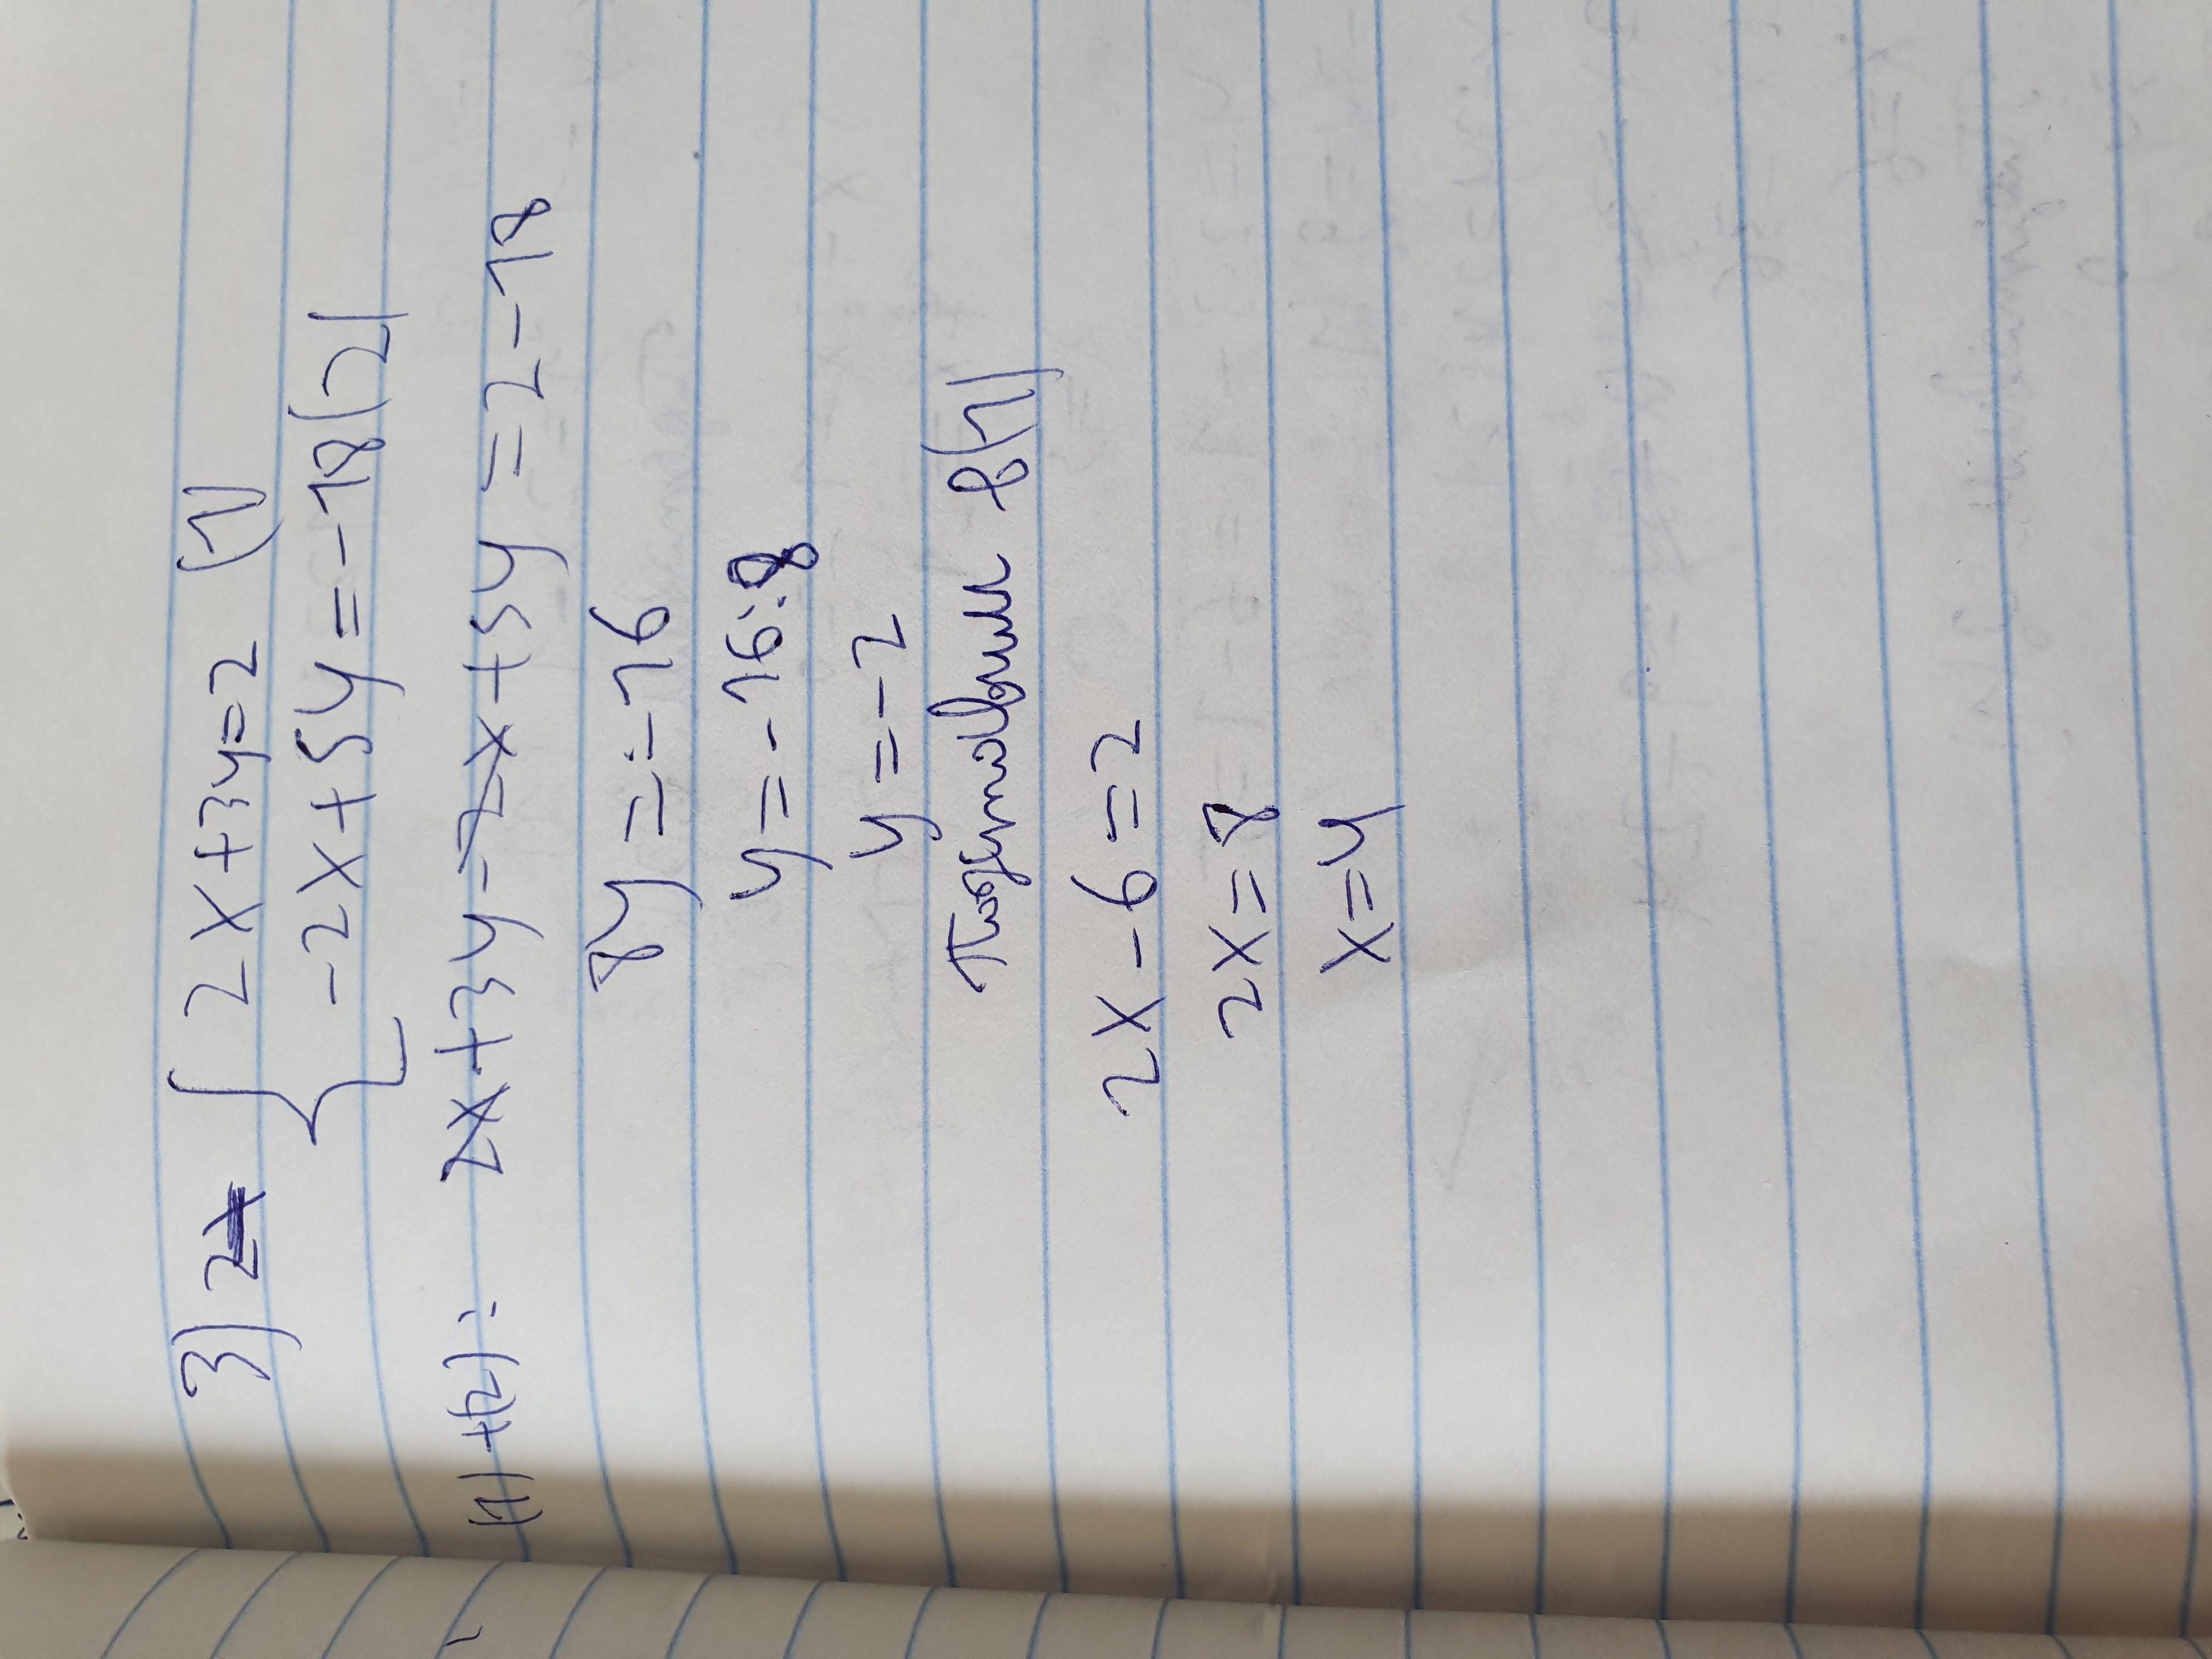 3) 2x { 2x+3y=2 (1)
-2x+5y=-18(2)
(1)+(2): 2x+3y-2x+5y=2-18
8y=-16
y=-16:8
y=-2
Подставим в(1)
2x-6=2
2x=8
x=4